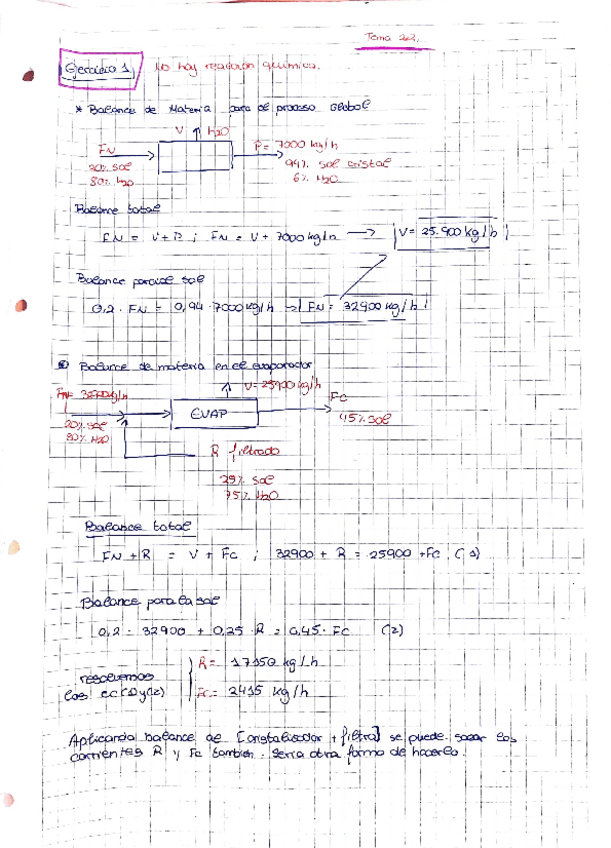 Tema 2.2.
Ejercicio 1 No hay reacción química.
* Balance de Materia para el proceso Global
V ↑ H2O
FN P = 7000 kg/h
20% sal 94% sal cristal
80% H2O 6% H2O
Balance total
FN = V+P ; FN = V + 7000 kg/h → V = 25.900 kg/h
Balance para sal
0,2 · FN = 0,94 · 7000 kg/h → FN = 32900 kg/h
Balance de materia en el evaporador
FN= V = 25900 kg/h FC
EVAP
20% sal 45% sal
80% H2O
R filtrado
75% H2O
Balance total
FN + R = V + FC ; 32900 + R = 25900 + FC (1)
Balance para la sal
0,2 · 32900 + 0,25 · R = 0,45 · FC (2)
resolvemos R = 17150 kg/h
las ec (1) y (2) FC = 2415 kg/h
Aplicando balance al [cristalizador + filtro] se puede sacar las
corrientes R y FC también. Sería otra forma de hacerlo.